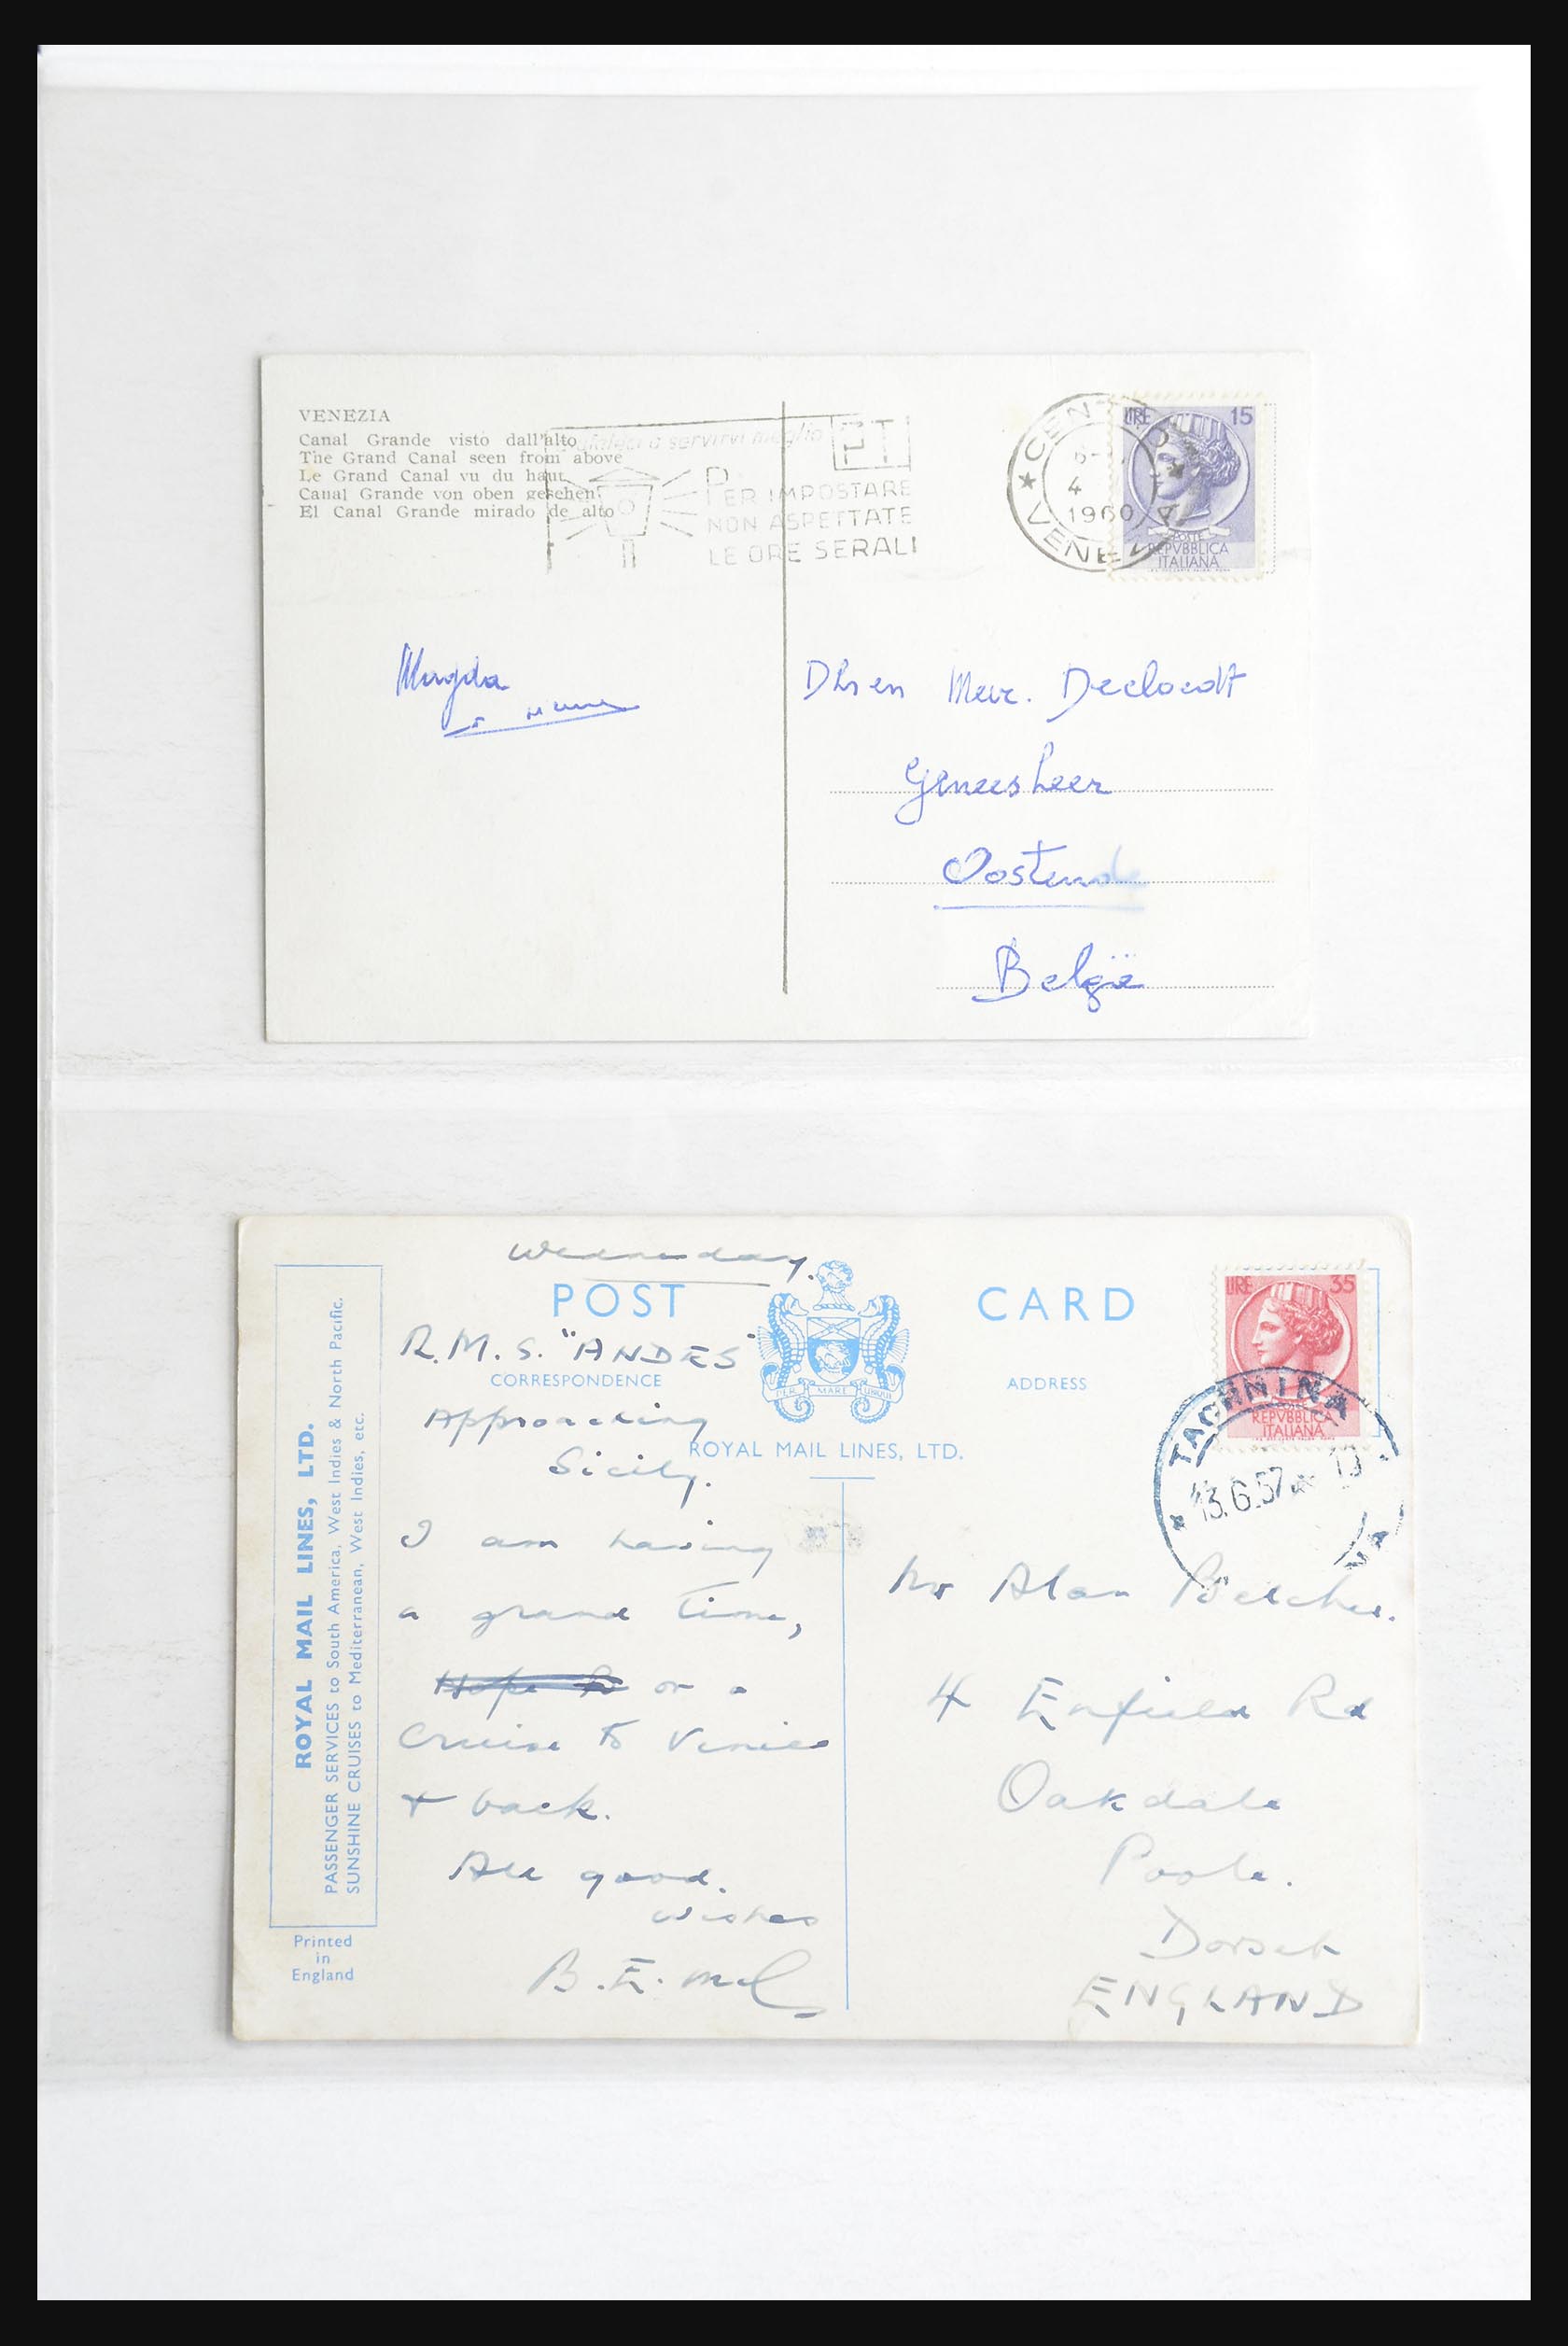 VENEZIA
Canal Grande visto dall'alto
The Grand Canal seen from above
Le Grand Canal vu du haut
Canal Grande von oben gesehen
El Canal Grande mirado de alto
a servirvi meglio
PT
PER IMPOSTARE
NON ASPETTATE
LE ORE SERALI
CENT
4
1960
VENEZ
LIRE 15
POSTE
REPVBBLICA
ITALIANA
Magda
Dhr en Mevr. Decloedt
Geneesheer
Oostende
België
Wednesday.
POST CARD
R.M.S. "ANDES"
CORRESPONDENCE
ADDRESS
PER MARE UBIQUE
ROYAL MAIL LINES, LTD.
Approaching
Sicily.
I am having
a grand time,
on a
Cruise to Venice
+ back.
All good.
wishes
B.E.
LIRE 35
REPVBBLICA
ITALIANA
TAORMINA
13.6.57
Mr Alan Belcher.
4 Enfield Rd
Oakdale
Poole.
Dorset
ENGLAND
ROYAL MAIL LINES, LTD.
PASSENGER SERVICES to South America, West Indies & North Pacific.
SUNSHINE CRUISES to Mediterranean, West Indies, etc.
Printed
in
England